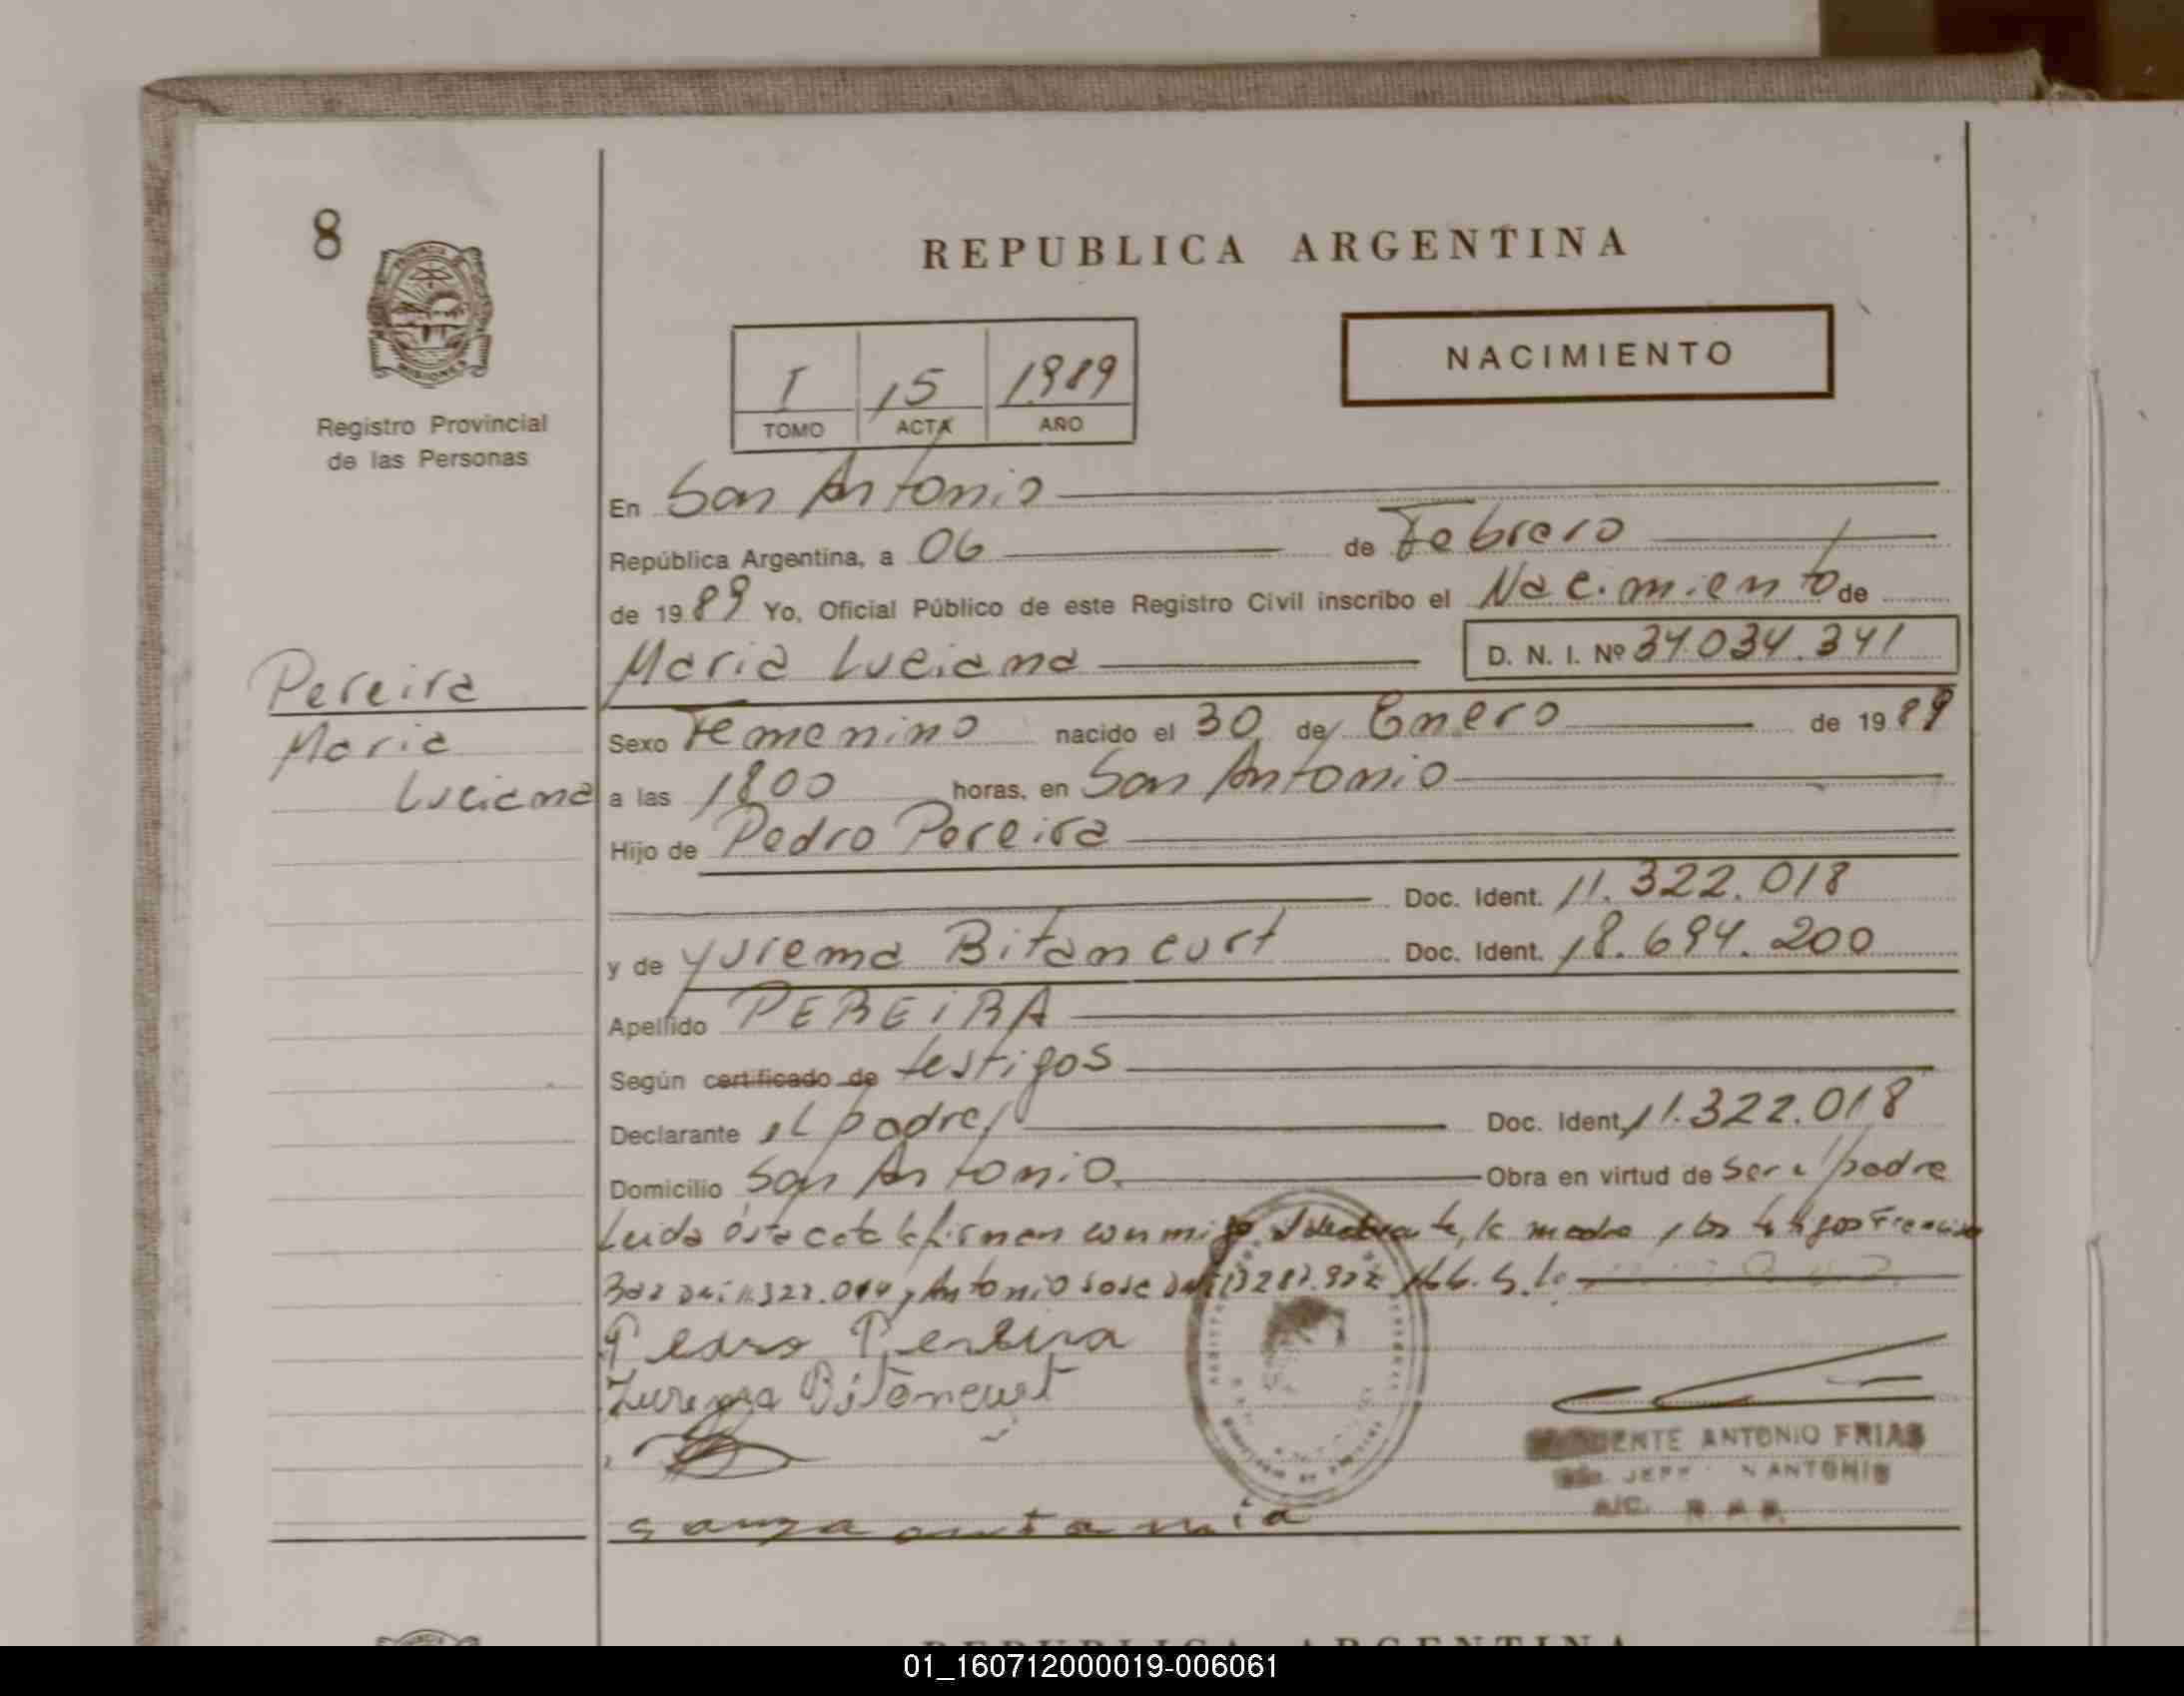 8
REPUBLICA ARGENTINA
NACIMIENTO
I 15 1989
TOMO ACTA AÑO
Registro Provincial
de las Personas
En San Antonio
República Argentina, a 06 de Febrero
de 1989 Yo, Oficial Público de este Registro Civil inscribo el Nacimiento de
Maria Luciana D. N. I. Nº 34.034.341
Pereira
Maria
Luciana
Sexo Femenino nacido el 30 de Enero de 1989
a las 1800 horas, en San Antonio
Hijo de Pedro Pereira
Doc. Ident. 11.322.018
y de Yurema Bitancurt Doc. Ident. 18.694.200
Apellido PEREIRA
Según certificado de testigos
Declarante el padre Doc. Ident. 11.322.018
Domicilio San Antonio. Obra en virtud de ser el padre
Leida ésta acta la firman conmigo el declarante, la madre y los testigos Francisco
y Antonio
Pedro Pereira
Zurema Bitancurt
ANTONIO FRIAS
JEFE N ANTONIO
01_160712000019-006061